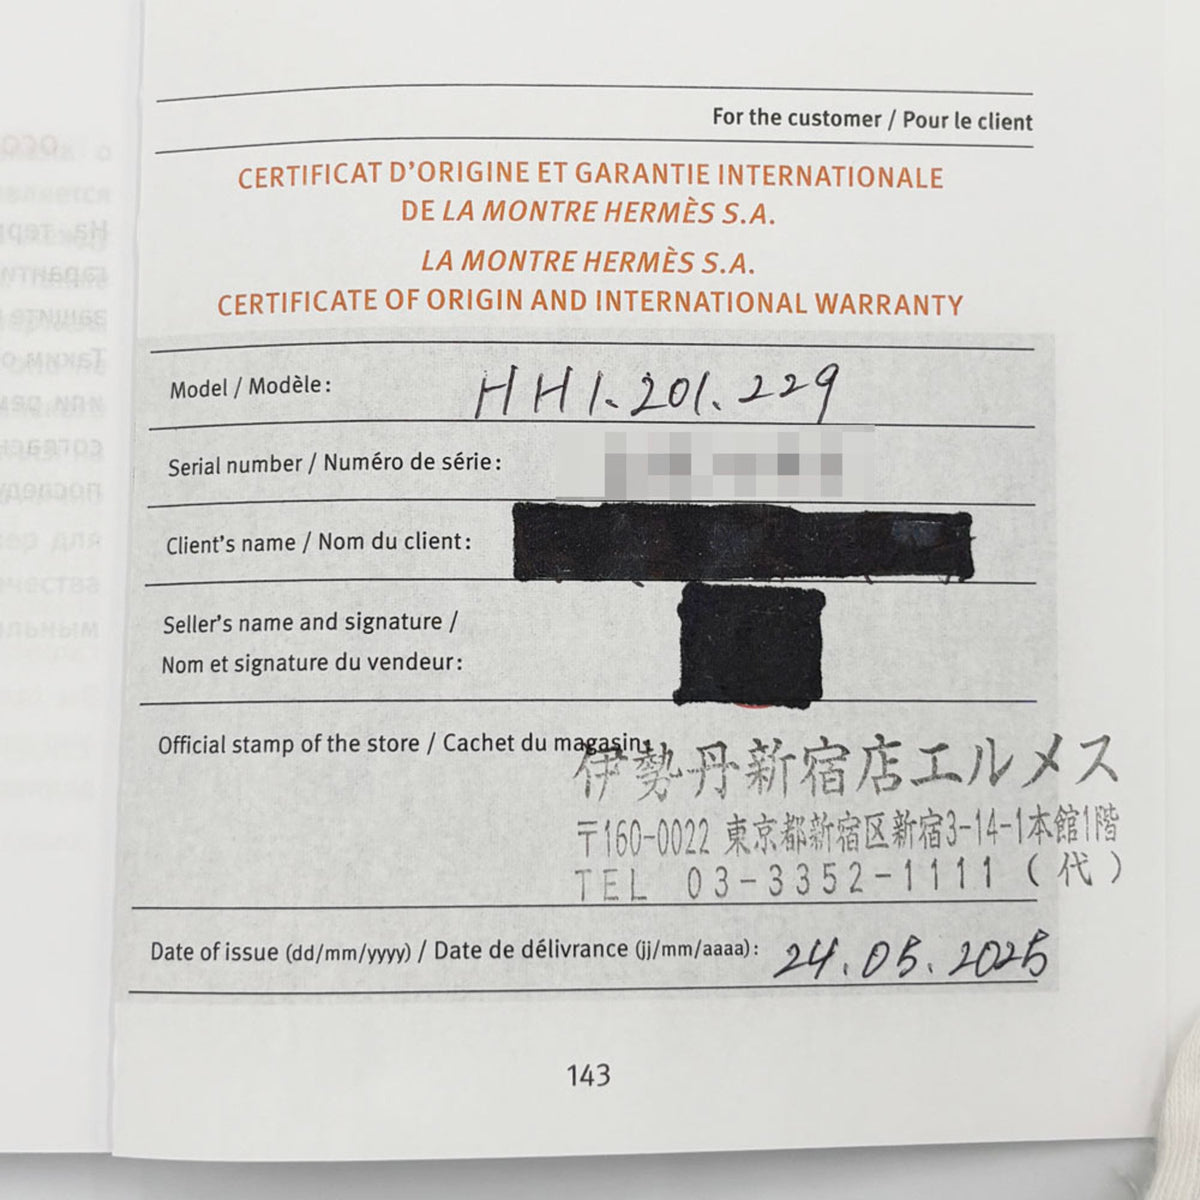 For the customer / Pour le client
CERTIFICAT D'ORIGINE ET GARANTIE INTERNATIONALE
DE LA MONTRE HERMÈS S.A.
LA MONTRE HERMÈS S.A.
CERTIFICATE OF ORIGIN AND INTERNATIONAL WARRANTY
Model / Modèle: HH1.201.229
Serial number / Numéro de série:
Client's name / Nom du client:
Seller's name and signature /
Nom et signature du vendeur:
Official stamp of the store / Cachet du magasin:
伊勢丹新宿店エルメス
〒160-0022 東京都新宿区新宿3-14-1本館1階
TEL 03-3352-1111（代）
Date of issue (dd/mm/yyyy) / Date de délivrance (jj/mm/aaaa): 24.05.2025
143